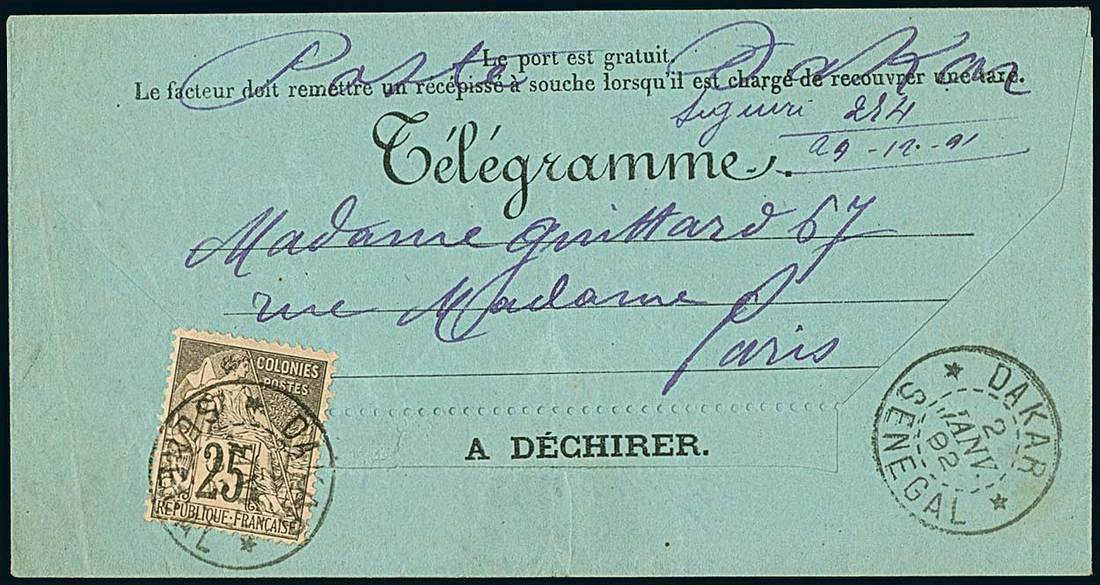 Poste Dakar
Le port est gratuit.
Le facteur doit remettre un récépissé à souche lorsqu'il est chargé de recouvrer une taxe.
Siguiri 284
29-12-91
Télégramme.
Madame Guittard 67
rue Madame
Paris
COLONIES
POSTES
25
RÉPUBLIQUE-FRANÇAISE
A DÉCHIRER.
DAKAR
2
JANV.
92
SÉNÉGAL